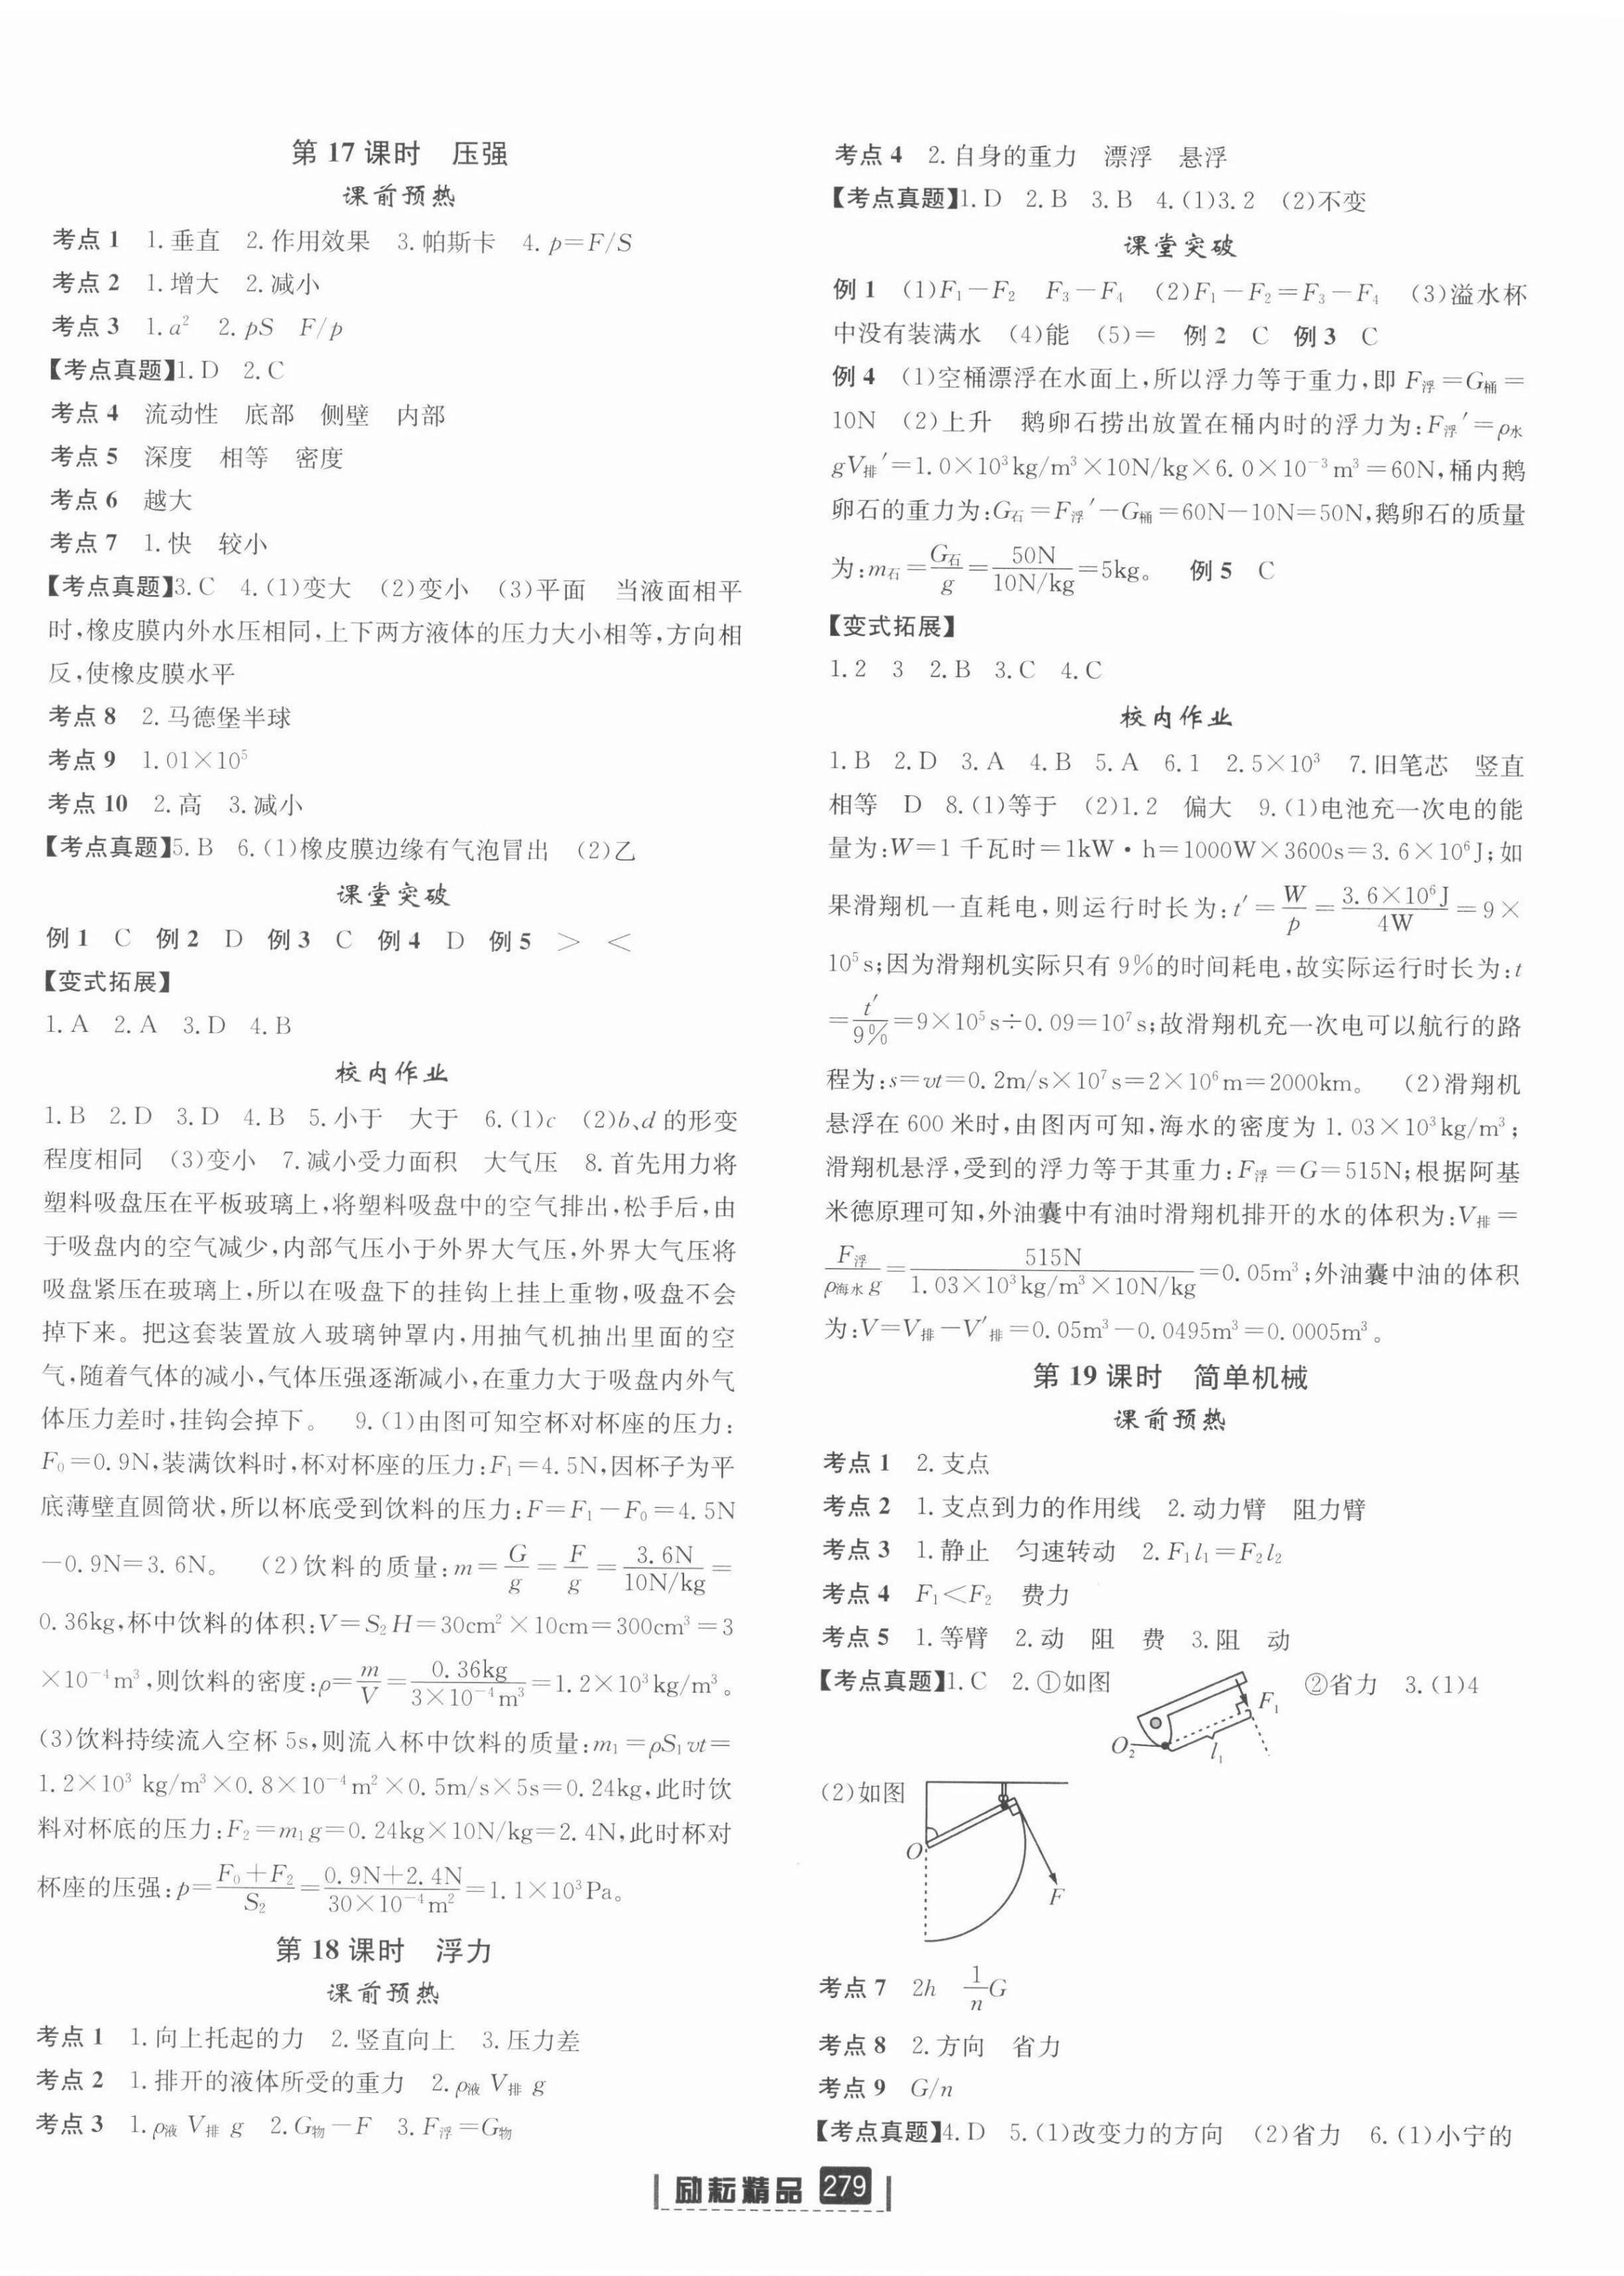 第 17 课时　压强
课前预热
考点 1　1. 垂直　2. 作用效果　3. 帕斯卡　4. p=F/S
考点 2　1. 增大　2. 减小
考点 3　1. a²　2. pS　F/p
【考点真题】1. D　2. C
考点 4　流动性　底部　侧壁　内部
考点 5　深度　相等　密度
考点 6　越大
考点 7　1. 快　较小
【考点真题】3. C　4. (1)变大　(2)变小　(3)平面　当液面相平
时,橡皮膜内外水压相同,上下两方液体的压力大小相等,方向相
反,使橡皮膜水平
考点 8　2. 马德堡半球
考点 9　1.01×10⁵
考点 10　2. 高　3. 减小
【考点真题】5. B　6. (1)橡皮膜边缘有气泡冒出　(2)乙
课堂突破
例 1　C　例 2　D　例 3　C　例 4　D　例 5　>　<
【变式拓展】
1. A　2. A　3. D　4. B
校内作业
1. B　2. D　3. D　4. B　5. 小于　大于　6. (1)c　(2)b、d 的形变
程度相同　(3)变小　7. 减小受力面积　大气压　8. 首先用力将
塑料吸盘压在平板玻璃上,将塑料吸盘中的空气排出,松手后,由
于吸盘内的空气减少,内部气压小于外界大气压,外界大气压将
吸盘紧压在玻璃上,所以在吸盘下的挂钩上挂上重物,吸盘不会
掉下来。把这套装置放入玻璃钟罩内,用抽气机抽出里面的空
气,随着气体的减小,气体压强逐渐减小,在重力大于吸盘内外气
体压力差时,挂钩会掉下。　9. (1)由图可知空杯对杯座的压力:
F₀=0.9N,装满饮料时,杯对杯座的压力:F₁=4.5N,因杯子为平
底薄壁直圆筒状,所以杯底受到饮料的压力:F=F₁-F₀=4.5N
-0.9N=3.6N。　(2)饮料的质量:m=G/g=F/g=3.6N/10N/kg=
0.36kg,杯中饮料的体积:V=S₂H=30cm²×10cm=300cm³=3
×10⁻⁴m³,则饮料的密度:ρ=m/V=0.36kg/3×10⁻⁴m³=1.2×10³kg/m³。
(3)饮料持续流入空杯 5s,则流入杯中饮料的质量:m₁=ρS₁vt=
1.2×10³ kg/m³×0.8×10⁻⁴m²×0.5m/s×5s=0.24kg,此时饮
料对杯底的压力:F₂=m₁g=0.24kg×10N/kg=2.4N,此时杯对
杯座的压强:p=F₀+F₂/S₂=0.9N+2.4N/30×10⁻⁴m²=1.1×10³Pa。
第 18 课时　浮力
课前预热
考点 1　1. 向上托起的力　2. 竖直向上　3. 压力差
考点 2　1. 排开的液体所受的重力　2. ρ液 V排 g
考点 3　1. ρ液 V排 g　2. G物-F　3. F浮=G物
考点 4　2. 自身的重力　漂浮　悬浮
【考点真题】1. D　2. B　3. B　4. (1)3.2　(2)不变
课堂突破
例 1　(1)F₁-F₂　F₃-F₄　(2)F₁-F₂=F₃-F₄　(3)溢水杯
中没有装满水　(4)能　(5)=　例 2　C　例 3　C
例 4　(1)空桶漂浮在水面上,所以浮力等于重力,即 F浮=G桶=
10N　(2)上升　鹅卵石捞出放置在桶内时的浮力为:F浮′=ρ水
gV排′=1.0×10³kg/m³×10N/kg×6.0×10⁻³m³=60N,桶内鹅
卵石的重力为:G石=F浮′-G桶=60N-10N=50N,鹅卵石的质量
为:m石=G石/g=50N/10N/kg=5kg。　例 5　C
【变式拓展】
1. 2　3　2. B　3. C　4. C
校内作业
1. B　2. D　3. A　4. B　5. A　6. 1　2.5×10³　7. 旧笔芯　竖直
相等　D　8. (1)等于　(2)1.2　偏大　9. (1)电池充一次电的能
量为:W=1 千瓦时=1kW·h=1000W×3600s=3.6×10⁶J;如
果滑翔机一直耗电,则运行时长为:t′=W/p=3.6×10⁶J/4W=9×
10⁵s;因为滑翔机实际只有 9%的时间耗电,故实际运行时长为:t
=t′/9%=9×10⁵s÷0.09=10⁷s;故滑翔机充一次电可以航行的路
程为:s=vt=0.2m/s×10⁷s=2×10⁶m=2000km。　(2)滑翔机
悬浮在 600 米时,由图丙可知,海水的密度为 1.03×10³kg/m³;
滑翔机悬浮,受到的浮力等于其重力:F浮=G=515N;根据阿基
米德原理可知,外油囊中有油时滑翔机排开的水的体积为:V排=
F浮/ρ海水g=515N/1.03×10³kg/m³×10N/kg=0.05m³;外油囊中油的体积
为:V=V排-V′排=0.05m³-0.0495m³=0.0005m³。
第 19 课时　简单机械
课前预热
考点 1　2. 支点
考点 2　1. 支点到力的作用线　2. 动力臂　阻力臂
考点 3　1. 静止　匀速转动　2. F₁l₁=F₂l₂
考点 4　F₁<F₂　费力
考点 5　1. 等臂　2. 动　阻　费　3. 阻　动
【考点真题】1. C　2. ①如图　②省力　3. (1)4
F₁
O₂
l₁
(2)如图
O
F
考点 7　2h　1/n G
考点 8　2. 方向　省力
考点 9　G/n
【考点真题】4. D　5. (1)改变力的方向　(2)省力　6. (1)小宁的
励耘精品 279